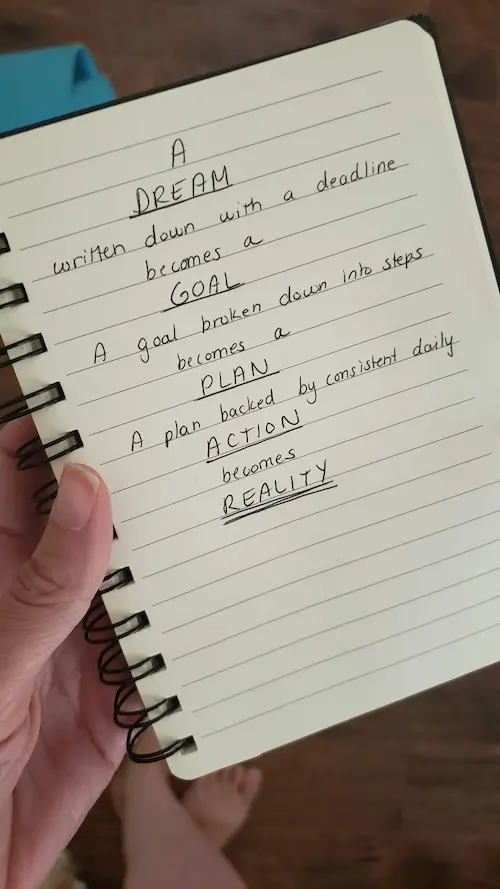 A
DREAM
written down with a deadline
becomes a
GOAL
A goal broken down into steps
becomes a
PLAN
A plan backed by consistent daily
ACTION
becomes
REALITY